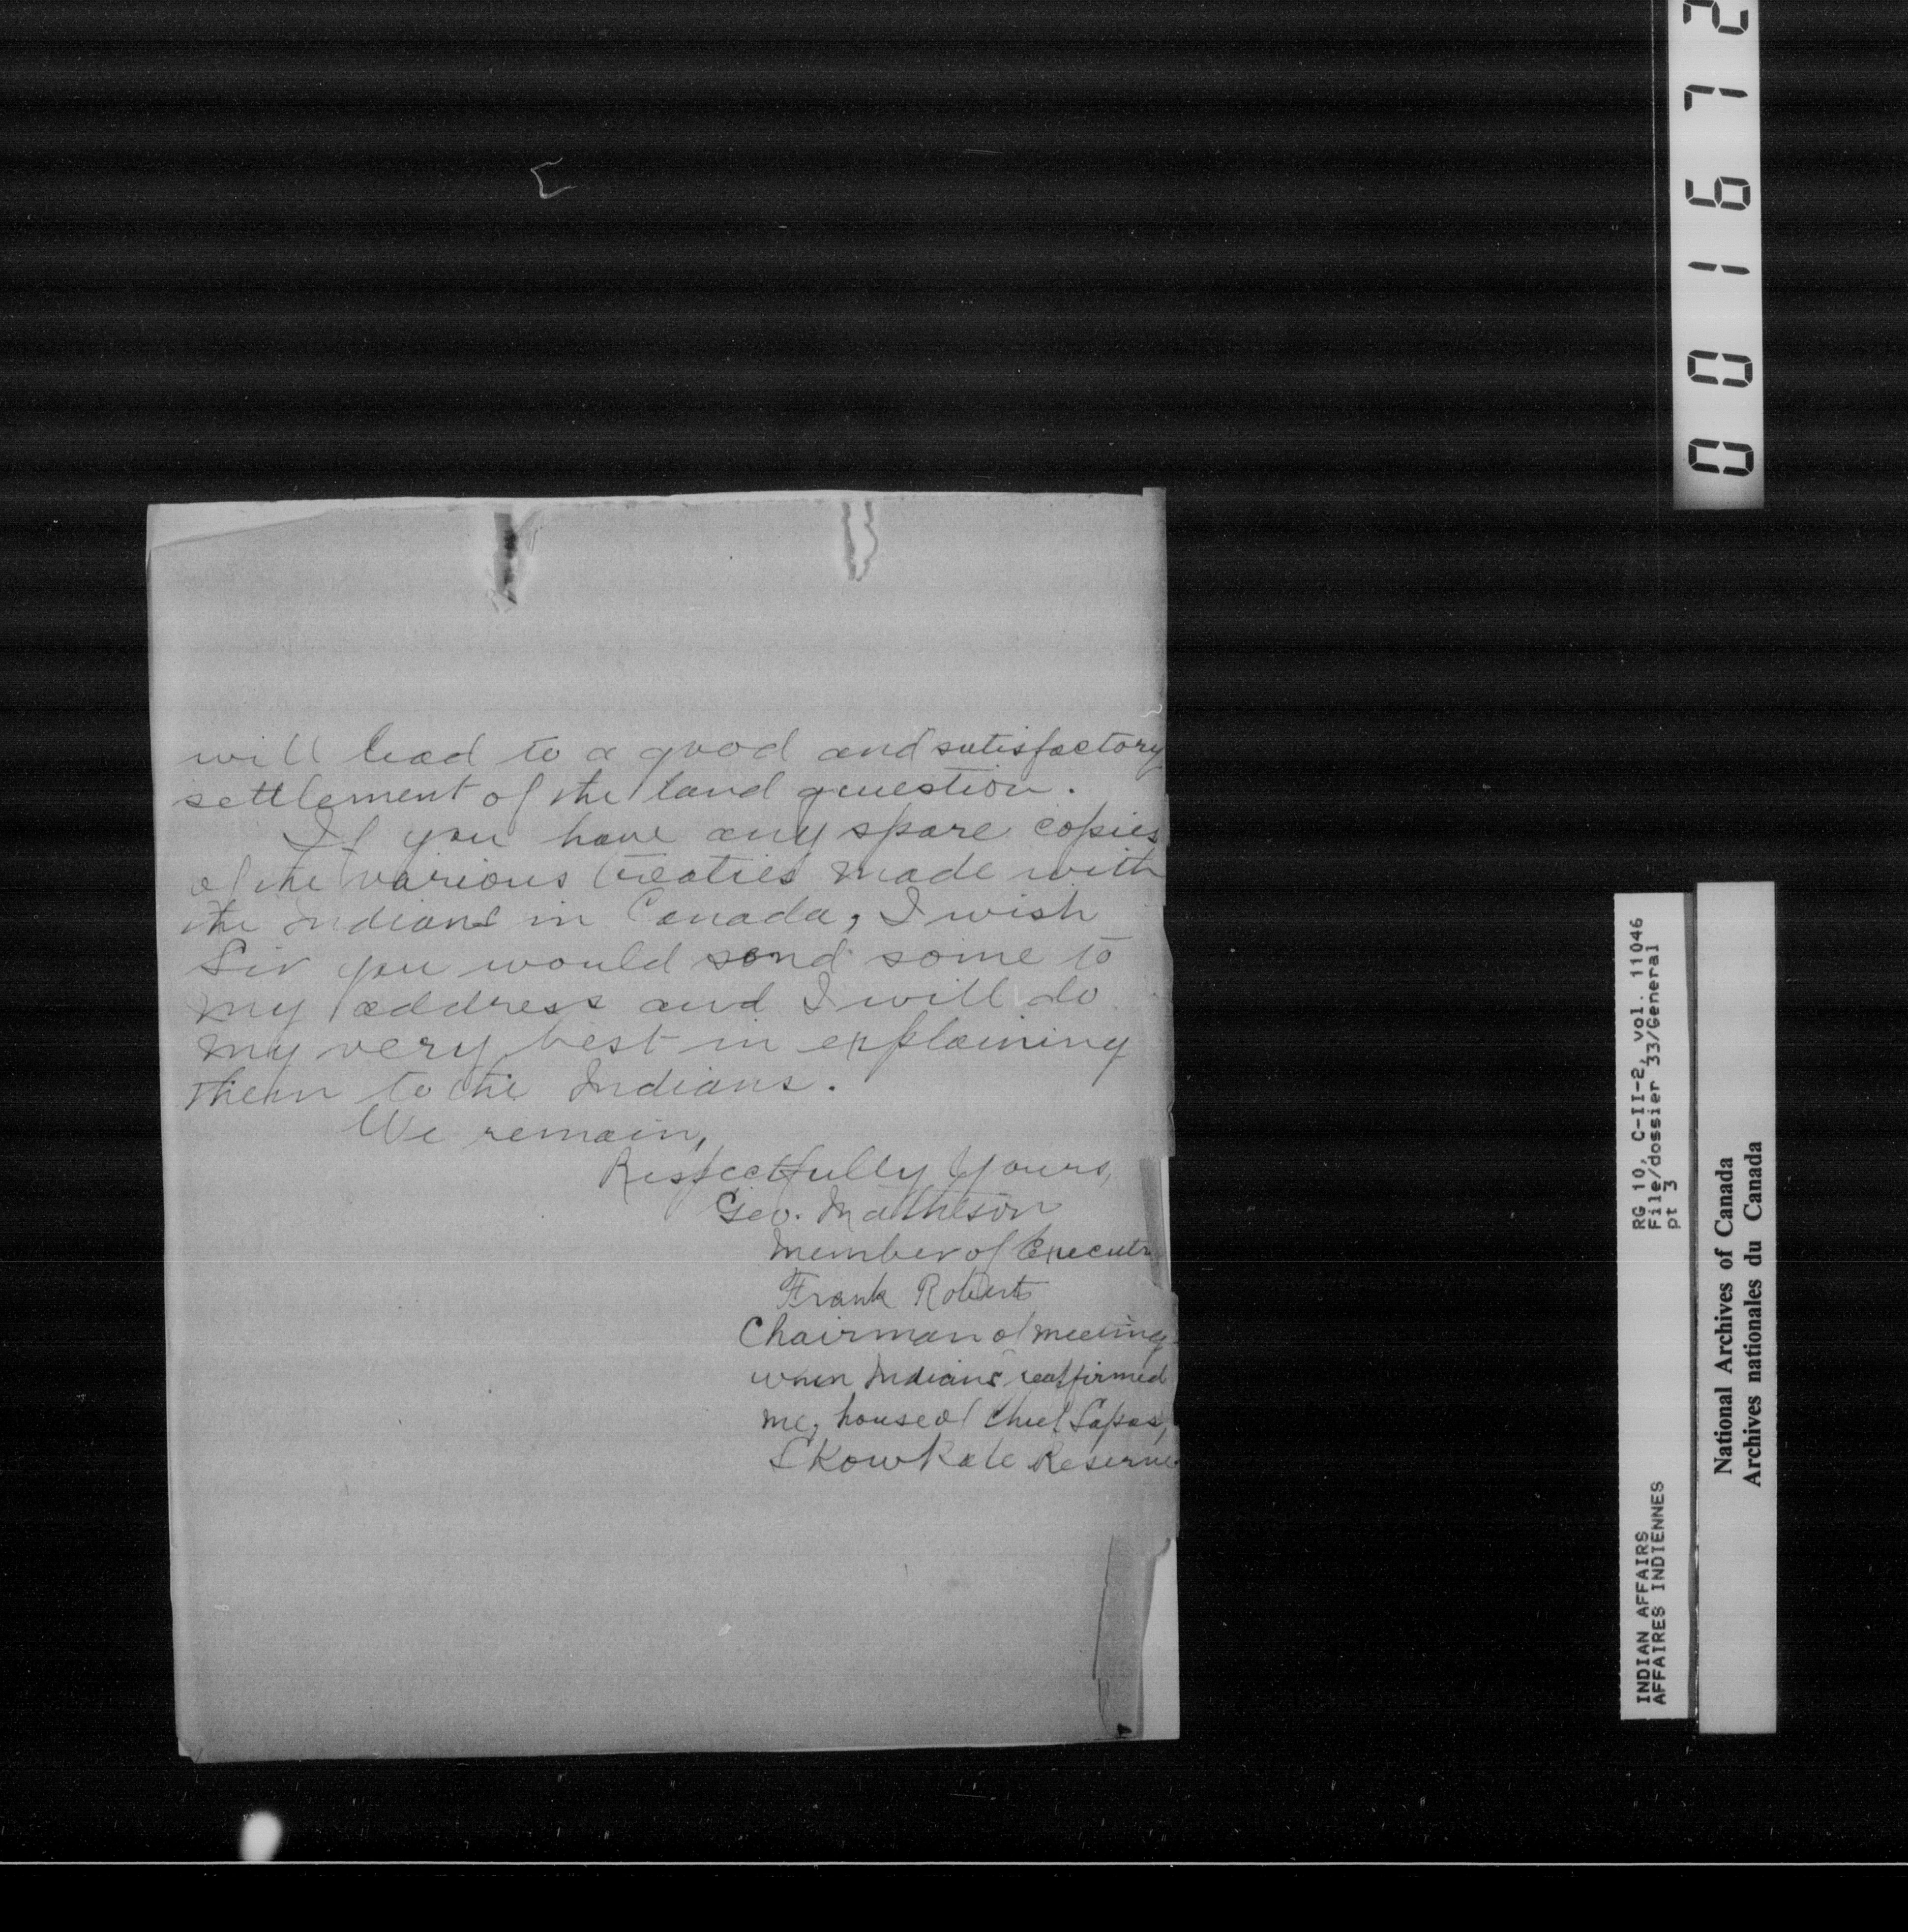 will lead to a good and satisfactory
settlement of the land question.
If you have any spare copies
of the various treaties made with
the Indians in Canada, I wish
Sir you would send some to
my address and I will do
my very best in explaining
them to the Indians.
We remain,
Respectfully Yours,
Geo. Matheson
Member of Executi
Frank Roberts
Chairman of meeting
when Indians reaffirmed
me, house of Chief Sepas,
Skowkale Reserve
001672
RG 10, C-II-2, vol. 11046
File/dossier 33/General
pt 3
INDIAN AFFAIRS
AFFAIRES INDIENNES
National Archives of Canada
Archives nationales du Canada